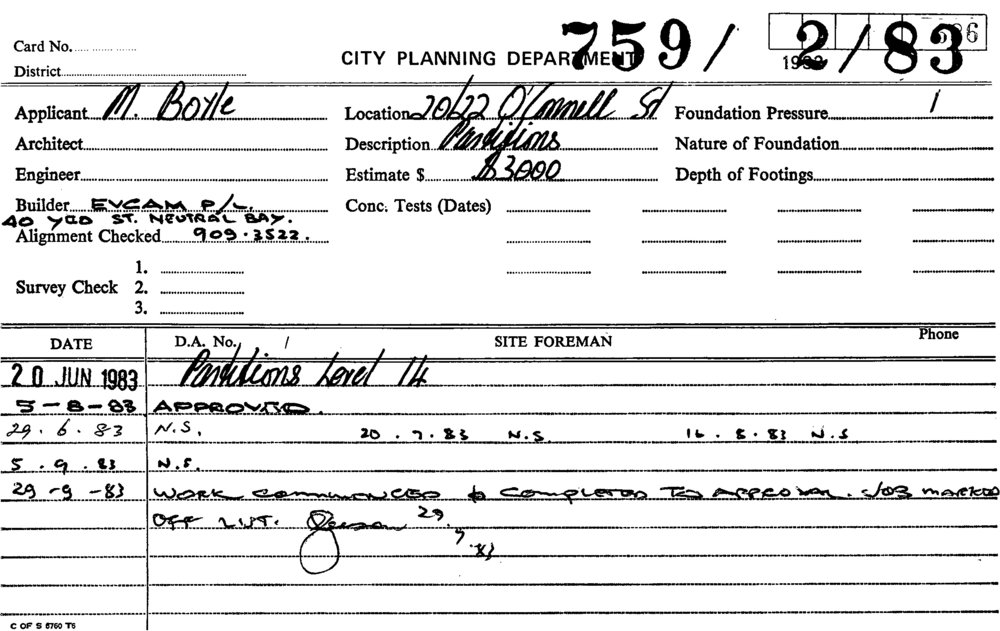 759/ 2/83
Card No.
CITY PLANNING DEPARTMENT
District
Applicant M. Boyle Location 20/22 O'Connell St Foundation Pressure /
Architect Description Partitions Nature of Foundation
Engineer Estimate $ $3000 Depth of Footings
Builder EVCAM P/L. Conc. Tests (Dates)
40 ST. NEUTRAL BAY.
Alignment Checked 909.3522.
1.
Survey Check 2.
3.
DATE D.A. No. / SITE FOREMAN Phone
20 JUN 1983 Partitions Level 14
5-8-83 APPROVED.
29.6.83 N.S. 20.7.83 N.S. 16.8.83 N.S
5.9.83 N.S.
29-9-83 WORK COMMENCED & COMPLETED TO APPROVAL. JOB MARKED
OFF LIST. 29.
.83
C OF S 5760 T6